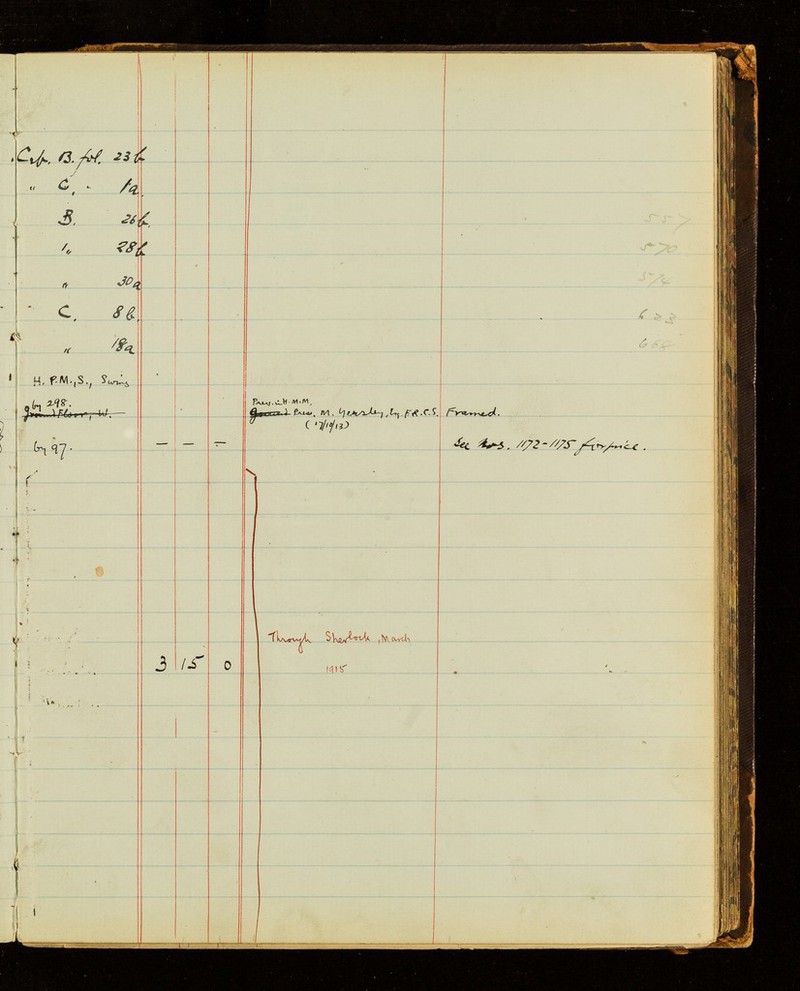 Cab. B. fol. 23b
" C, - 1a.
B. 26b.
" 28b
" 30a
" C. 8b.
" 18a
H. P.M.,S., Swing
by 298. Pres. W.H.M.M.
ground Floor, W. Pres. M. Yearsley, Esq. F.R.C.S. Framed.
(17/10/13)
by 97. — — — See Nos. 1172-1175 for price.
Through Sherlock, March
3 15 0 1915
557
570
574
623
668